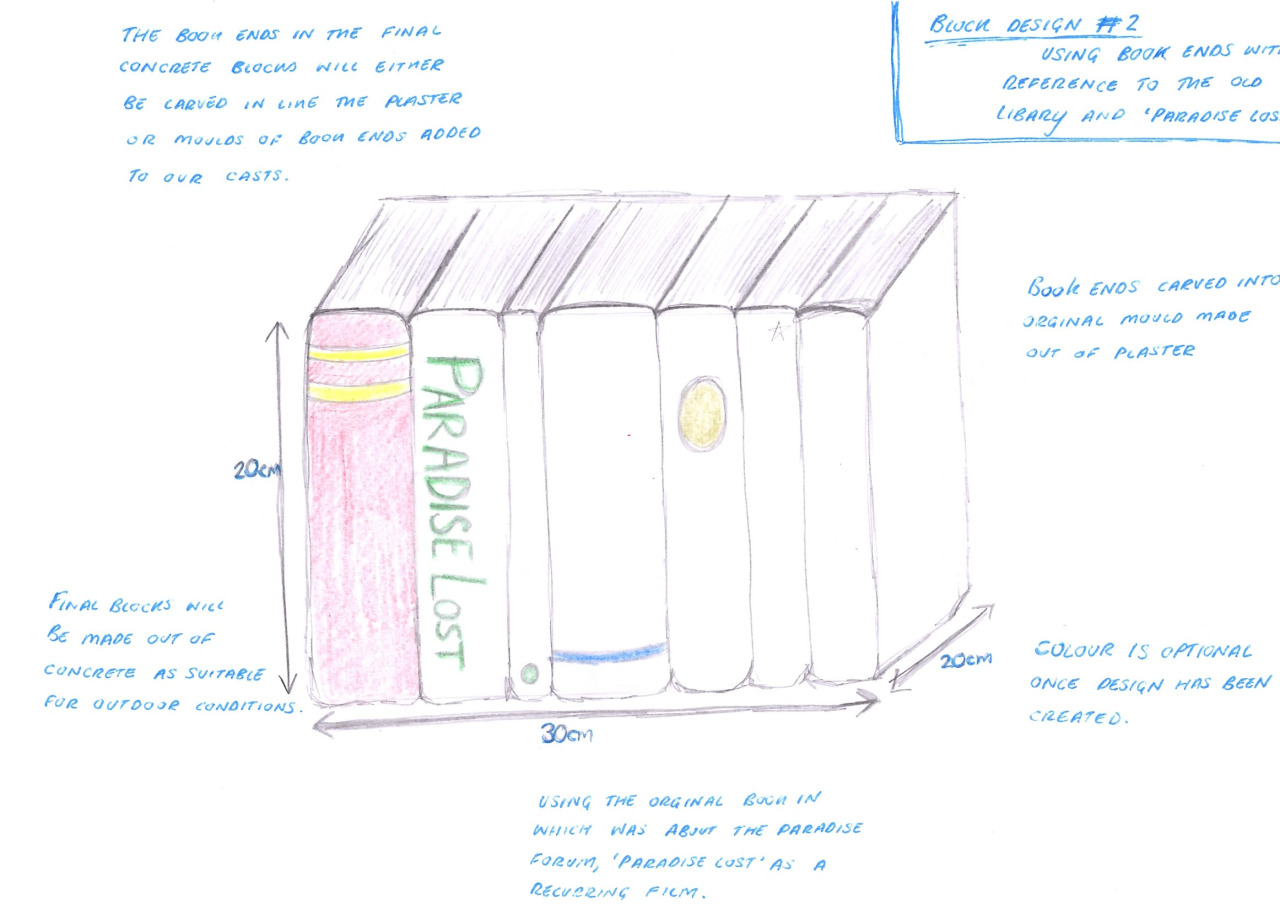 THE BOOK ENDS IN THE FINAL
CONCRETE BLOCKS WILL EITHER
BE CARVED IN LIKE THE PLASTER
OR MOULDS OF BOOK ENDS ADDED
TO OUR CASTS.
BLOCK DESIGN #2
USING BOOK ENDS WITH
REFERENCE TO THE OLD
LIBRARY AND 'PARADISE LOS
BOOK ENDS CARVED INTO
ORGINAL MOULD MADE
OUT OF PLASTER
PARADISE LOST
20cm
FINAL BLOCKS WILL
BE MADE OUT OF
CONCRETE AS SUITABLE
FOR OUTDOOR CONDITIONS.
20cm
COLOUR IS OPTIONAL
ONCE DESIGN HAS BEEN
CREATED.
30cm
USING THE ORGINAL BOOK IN
WHICH WAS ABOUT THE PARADISE
FORUM, 'PARADISE LOST' AS A
FILM.